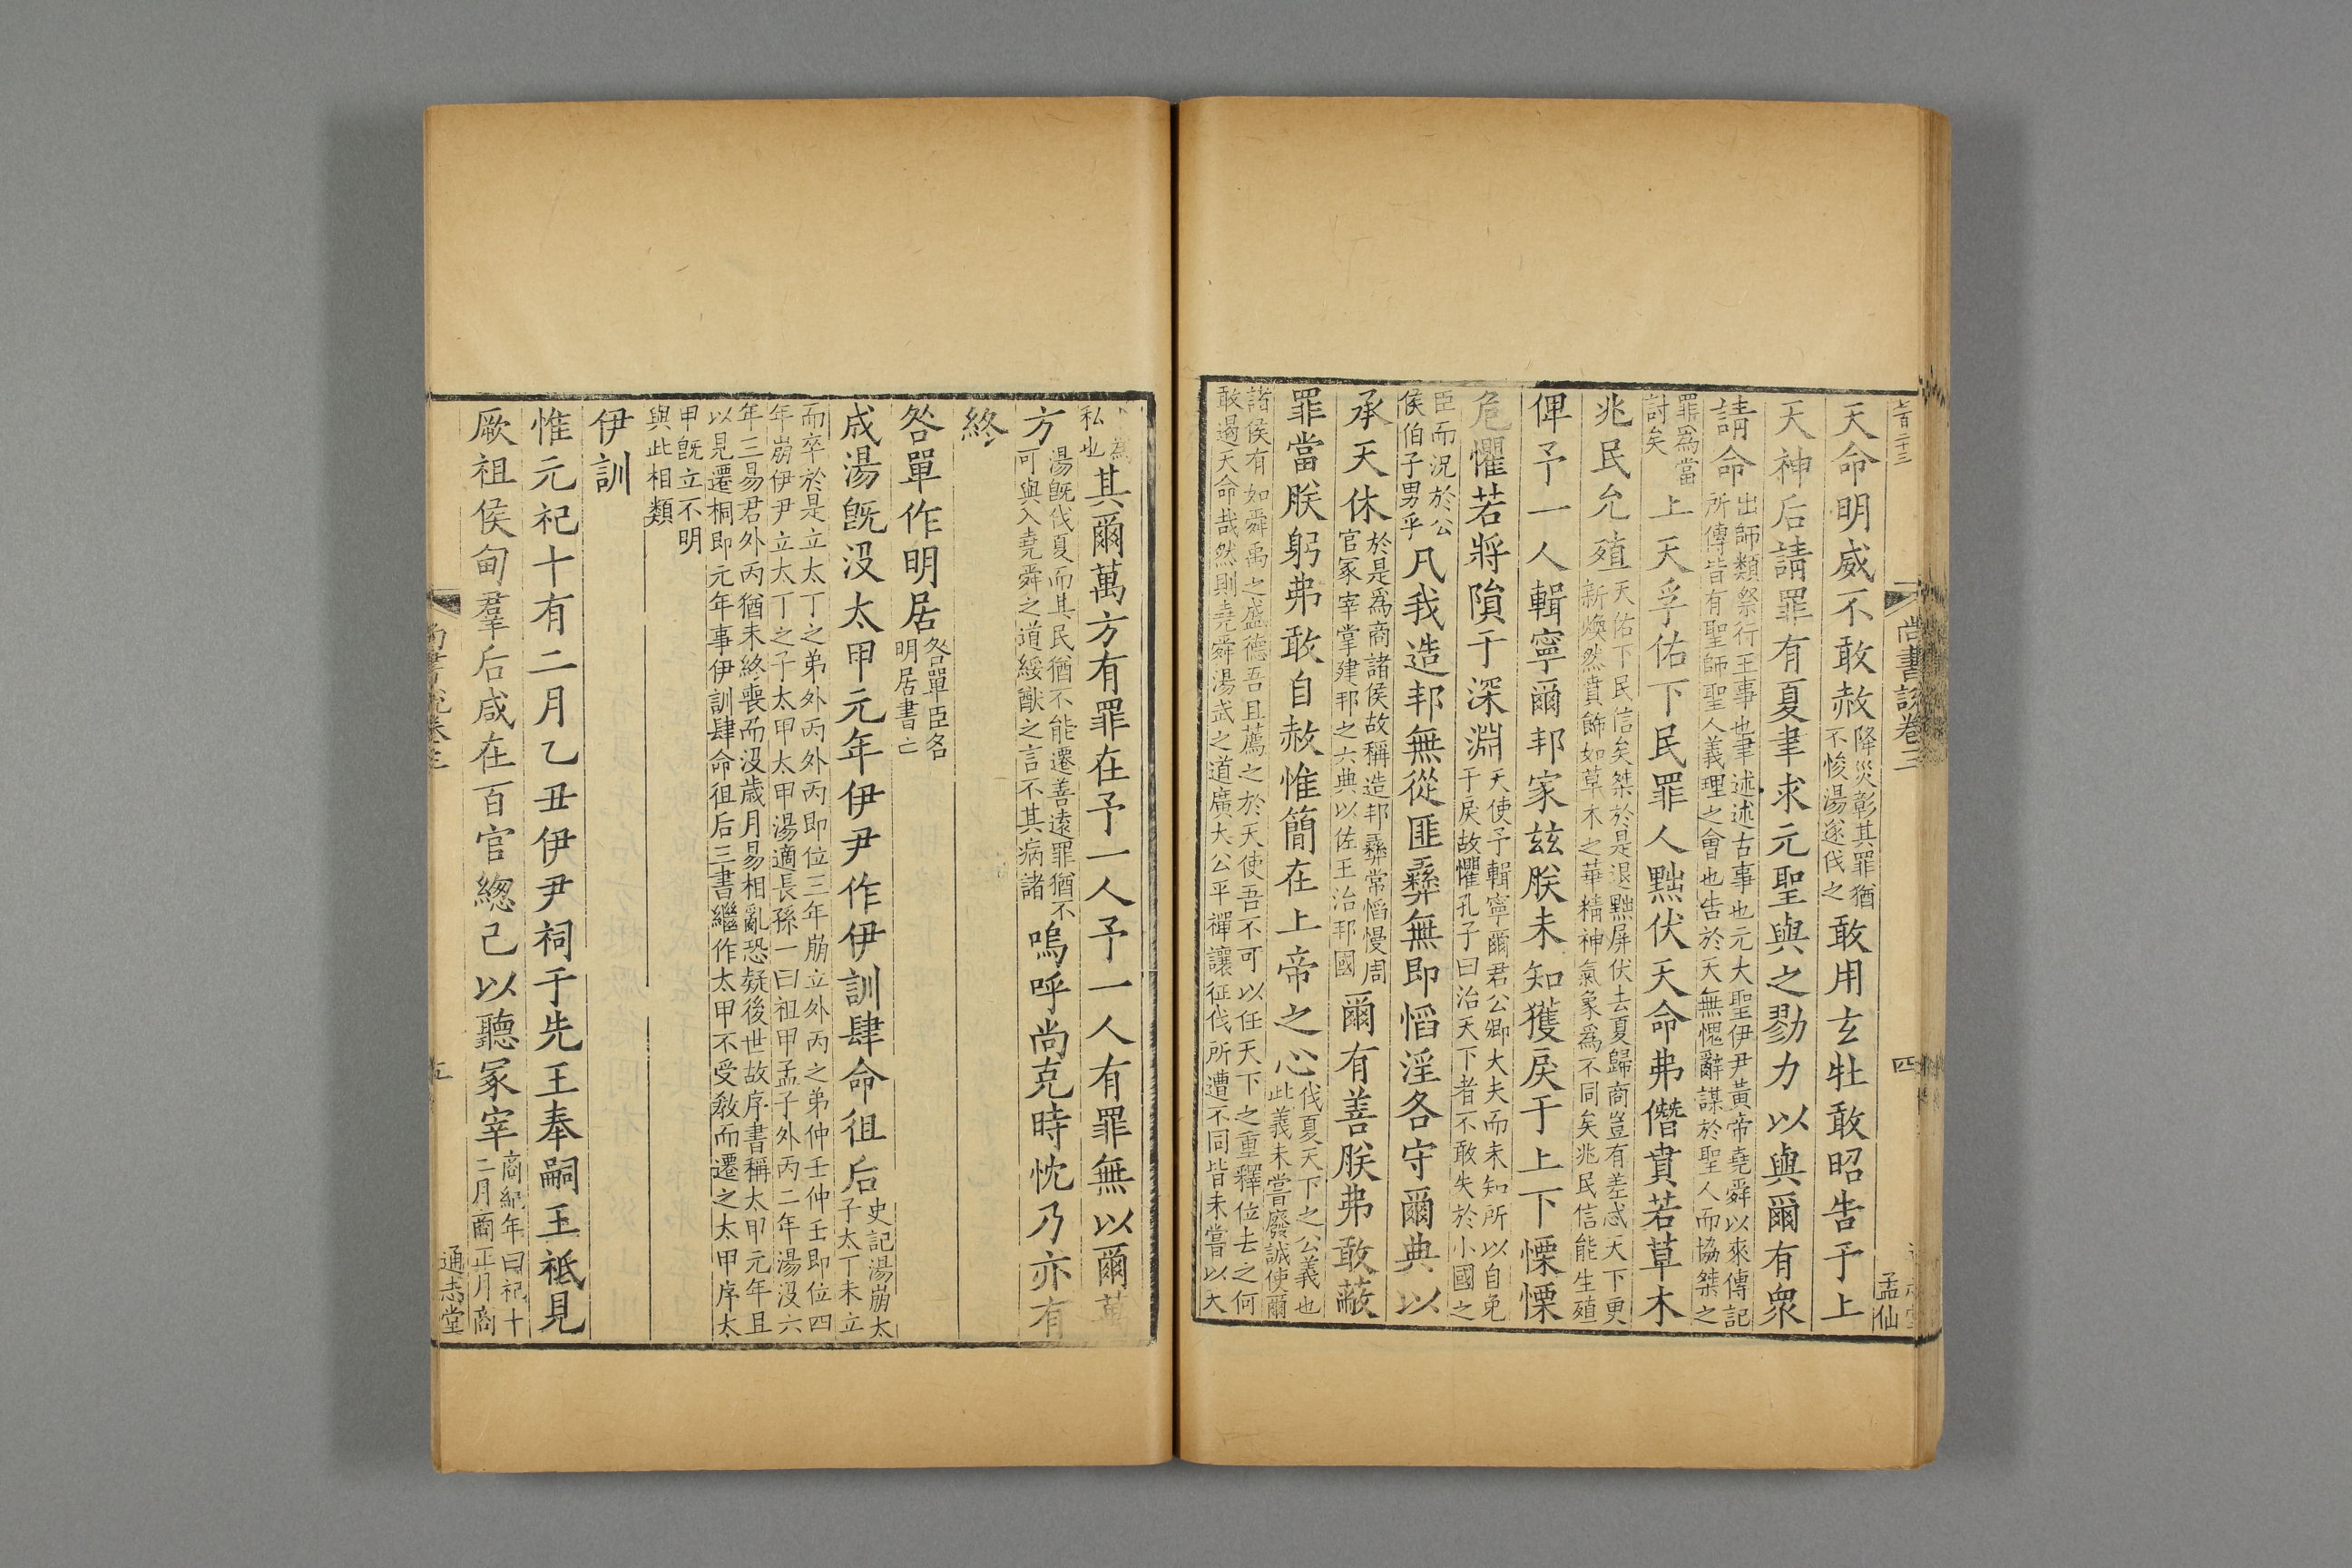 天命明威不敢赦降災彰其罪猶不悛湯遂伐之敢用玄牡敢昭告于上
天神后請罪有夏聿求元聖與之勠力以與爾有衆
請命出師類祭行王事也聿述述古事也元大聖伊尹黃帝堯舜以來傳記所傳皆有聖師聖人義理之會也告於天無愧辭謀於聖人而恊桀之
罪爲當討矣上天孚佑下民罪人黜伏天命弗僭賁若草木
兆民允殖天佑下民信矣桀於是退黜屏伏去夏歸商豈有差忒天下更新煥然賁飾如草木之華精神氣象爲不同矣兆民信能生殖
俾予一人輯寧爾邦家兹朕未知獲戾于上下慄慄
危懼若將隕于深淵天使予輯寧爾君公卿大夫而未知所以自免于戾故懼孔子曰治天下者不敢失於小國之
臣而況於公侯伯子男乎凡我造邦無從匪彝無即慆淫各守爾典以
承天休於是爲商諸侯故稱造邦彝常慆慢周官冢宰掌建邦之六典以佐王治邦國爾有善朕弗敢蔽
罪當朕躬弗敢自赦惟簡在上帝之心伐夏天下之公義也此義未嘗廢誠使爾
諸侯有如舜禹之盛德吾且薦之於天使吾不可以任天下之重釋位去之何敢遏天命哉然則堯舜湯武之道廣大公平禪讓征伐所遭不同皆未嘗以天
尚書說卷三
四
孟仙
爲私也其爾萬方有罪在予一人予一人有罪無以爾萬
方湯旣伐夏而其民猶不能遷善遠罪猶不可與入堯舜之道綏猷之言不其病諸嗚呼尚克時忱乃亦有
終
咎單作明居咎單臣名明居書亡
成湯旣沒太甲元年伊尹作伊訓肆命徂后史記湯崩太子太丁未立
而卒於是立太丁之弟外丙外丙即位三年崩立外丙之弟仲壬仲壬即位四年崩伊尹立太丁之子太甲太甲湯適長孫一曰祖甲孟子外丙二年湯沒六
年三易君外丙猶未終喪而沒歲月易相亂恐疑後世故序書稱太甲元年且以見遷桐即元年事伊訓肆命徂后三書繼作太甲不受敎而遷之太甲序太
甲旣立不明與此相類
伊訓
惟元祀十有二月乙丑伊尹祠于先王奉嗣王祗見
厥祖侯甸羣后咸在百官緫己以聽冢宰商紀年曰祀十二月商正月商
五
通志堂